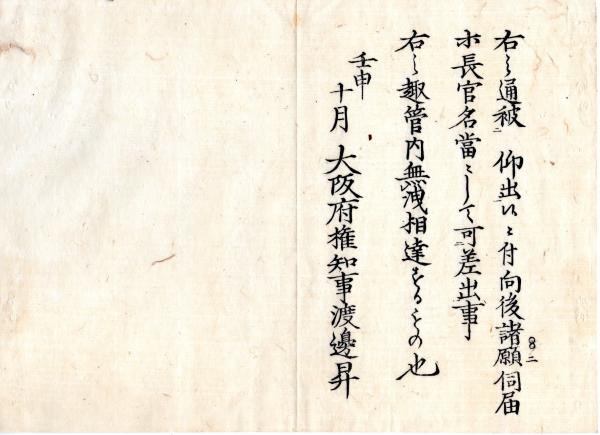 右之通被 仰出候ニ付向後諸願伺届
ホ長官名當ニして可差出事
右之趣管内無洩相達するもの也
壬申
十月 大阪府権知事渡邊昇